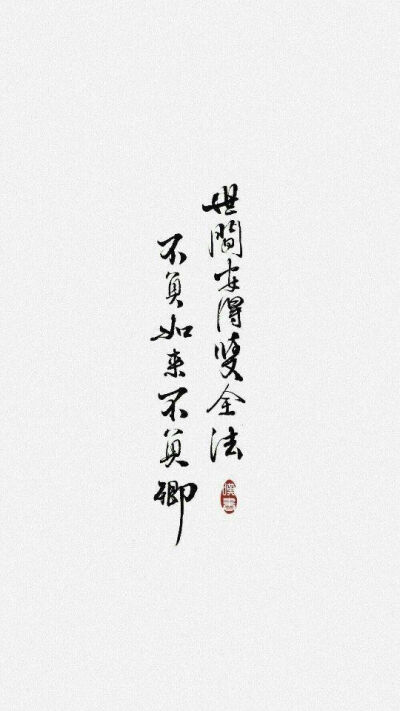 世間安得雙全法
不負如来不負卿
漢書